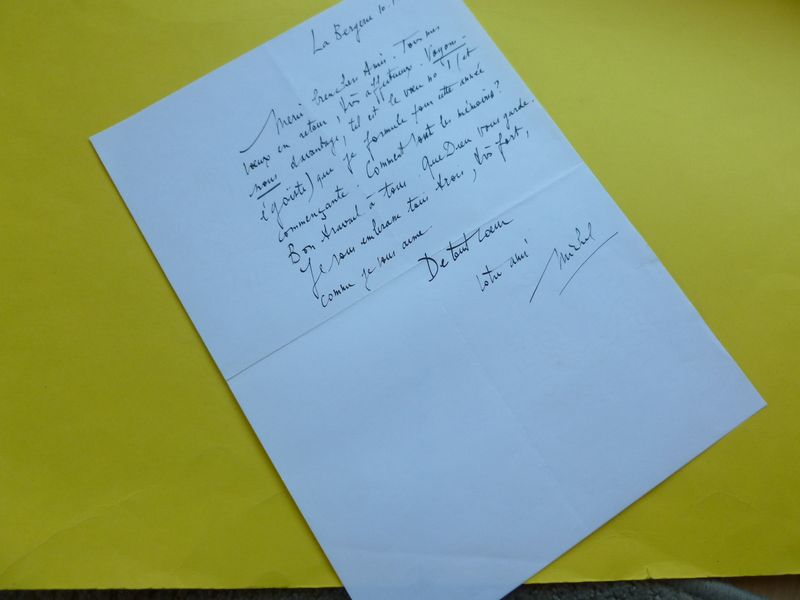 La Bergerie 10.1
Merci bien chers Amis. Tous mes
vœux en retour, très affectueux. Voyons-
nous davantage, tel est le vœu no 1 (et
égoïste) que je formule pour cette année
commençante. Comment sont les mémoires?
Bon travail à tous. Que Dieu vous garde.
Je vous embrasse tous trois, très fort,
comme je vous aime.
De tout cœur
votre ami
Michel